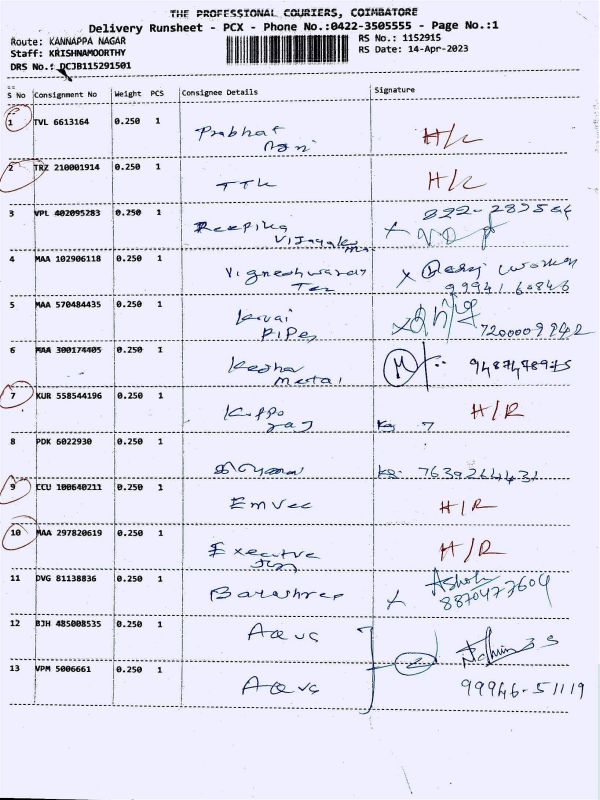 THE PROFESSIONAL COURIERS, COIMBATORE
Delivery Runsheet - PCX - Phone No.:0422-3505555 - Page No.:1
Route: KANNAPPA NAGAR RS No.: 1152915
Staff: KRISHNAMOORTHY RS Date: 14-Apr-2023
DRS No.: DCJB115291501
S No Consignment No Weight PCS Consignee Details Signature
1 TVL 6613164 0.250 1
Prabhat H/R
2 TRZ 210001914 0.250 1
TTK H/R
3 VPL 402095283 0.250 1
Deepika
Vijayakumar
4 MAA 102906118 0.250 1
Vigneshwaran
Tex 99941 60846
5 MAA 570484435 0.250 1
Kovai
Pipes 7200009942
6 MAA 300174405 0.250 1
Kedhar M 9487478975
Metal
7 KUR 558544196 0.250 1
Kuppo H/R
raj
8 PDK 6022930 0.250 1
7639264431
9 CCU 100640211 0.250 1
Emvee H/R
10 MAA 297820619 0.250 1
Executive H/R
11 DVG 81138836 0.250 1
Balashree Ashok
8870477604
12 BJH 485008535 0.250 1
Aqua
13 VPM 5006661 0.250 1
Aqua 99946-51119